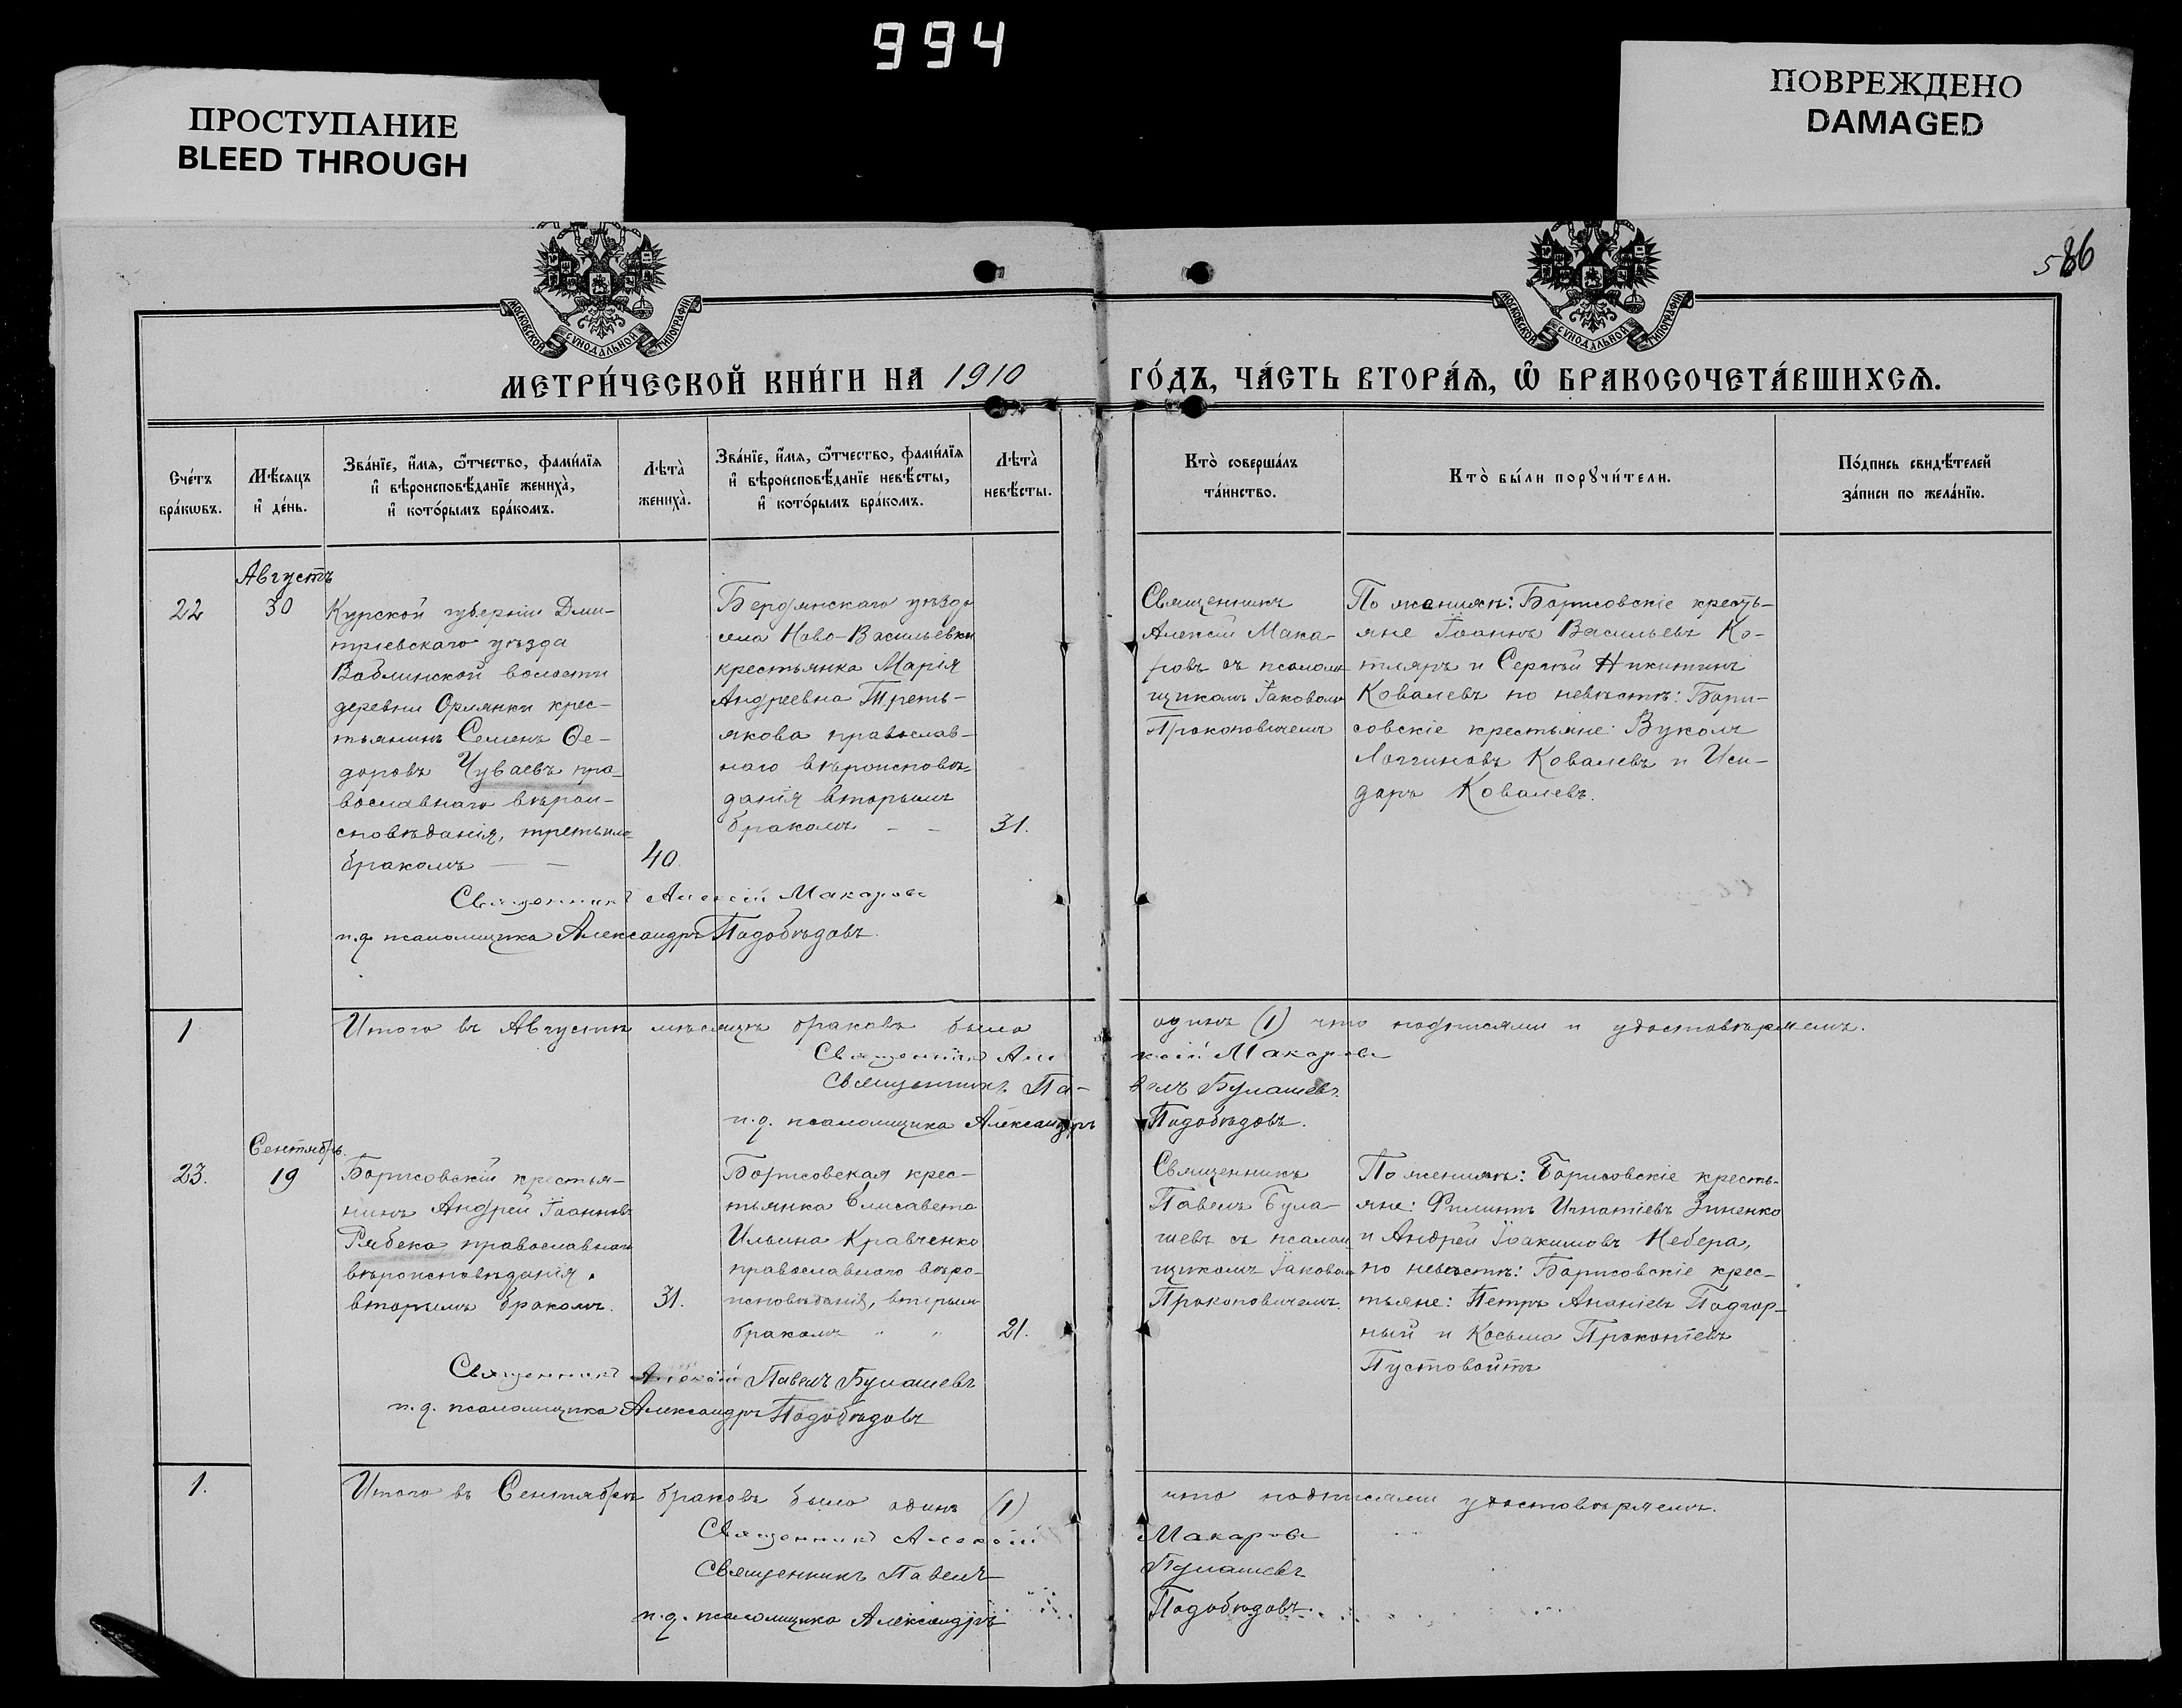 994
ПРОСТУПАНИЕ
BLEED THROUGH
ПОВРЕЖДЕНО
DAMAGED
586
МОСКОВСКОЙ СѴНОДАЛЬНОЙ ТИПОГРАФІИ
МОСКОВСКОЙ СѴНОДАЛЬНОЙ ТИПОГРАФІИ
МЕТРИ́ЧЕСКОЙ КНИ́ГИ НА 1910
ГО́ДЪ, ЧА́СТЬ ВТОРА́Ѧ, Ѽ БРАКОСОЧЕТА́ВШИХСѦ.
Сче́тъ
бра́кѡвъ.
Мѣ́сѧцъ
и҆ де́нь.
Зва́нїе, и҆́мѧ, ѻ҆́тчество, фами́лїѧ
и҆ вѣроисповѣ́данїе жениха̀,
и҆ кото́рымъ бра́комъ.
Лѣта̀
жениха̀.
Зва́нїе, и҆́мѧ, ѻ҆́тчество, фами́лїѧ
и҆ вѣроисповѣ́данїе невѣ́сты,
и҆ кото́рымъ бра́комъ.
Лѣта̀
невѣ́сты.
Кто̀ соверша́лъ
та́инство.
Кто̀ бы́ли порꙋчи́тели.
По́дпись свидѣ́телей
за́писи по жела́нїю.
Августъ
22
30
Курской губерніи Дми-
тріевскаго уѣзда
Ваблинской волости
деревни Орлянки крес-
тьянинъ Семенъ Ѳе-
доровъ Чуваевъ пра-
вославнаго вѣрои-
сповѣданія, третьимъ
бракомъ — —
40.
Бердянскаго уѣзда
села Ново-Васильевки
крестьянка Марія
Андреевна Треть-
якова православ-
наго вѣроисповѣ-
данія вторымъ
бракомъ — —
31.
Священникъ
Алексій Мака-
ровъ съ псалом-
щикомъ Іаковомъ
Прокоповичемъ
По женихѣ: Борисовскіе кресть-
яне Іоаннъ Васильевъ Ко-
тляръ и Сергѣй Никитинъ
Ковалевъ по невѣстѣ: Бори-
совскіе крестьяне: Вуколъ
Логгиновъ Ковалевъ и Иси-
доръ Ковалевъ.
Священникъ Алексій Макаровъ
и.д. псаломщика Александръ Подобѣдовъ.
1
Итого въ Августѣ мѣсяцѣ браковъ было одинъ (1) что подписями и удостовѣряемъ.
Священникъ Алексій Макаровъ
Священникъ Павелъ Булашевъ
и.д. псаломщика Александръ Подобѣдовъ.
Сентябрь.
23.
19
Борисовскій крестья-
нинъ Андрей Іоанновъ
Рябека православнаго
вѣроисповѣданія,
вторымъ бракомъ.
31.
Борисовская крес-
тьянка Елисавета
Ильина Кравченко
православнаго вѣро-
исповѣданія, вторымъ
бракомъ " "
21.
Священникъ
Павелъ Була-
шевъ съ псалом-
щикомъ Іаковомъ
Прокоповичемъ.
По женихѣ: Борисовскіе кресть-
яне: Филиппъ Игнатіевъ Зиненко
и Андрей Іоакимовъ Небера,
по невѣстѣ: Борисовскіе крес-
тьяне: Петръ Ананіевъ Подгор-
ный и Косьма Прокопіевъ
Пустовойтъ
Священникъ Алексій Павелъ Булашевъ
и.д. псаломщика Александръ Подобѣдовъ
1.
Итого въ Сентябрѣ браковъ было одинъ (1) что подписями удостовѣряемъ.
Священникъ Алексій Макаровъ
Священникъ Павелъ Булашевъ
и.д. псаломщика Александръ Подобѣдовъ.